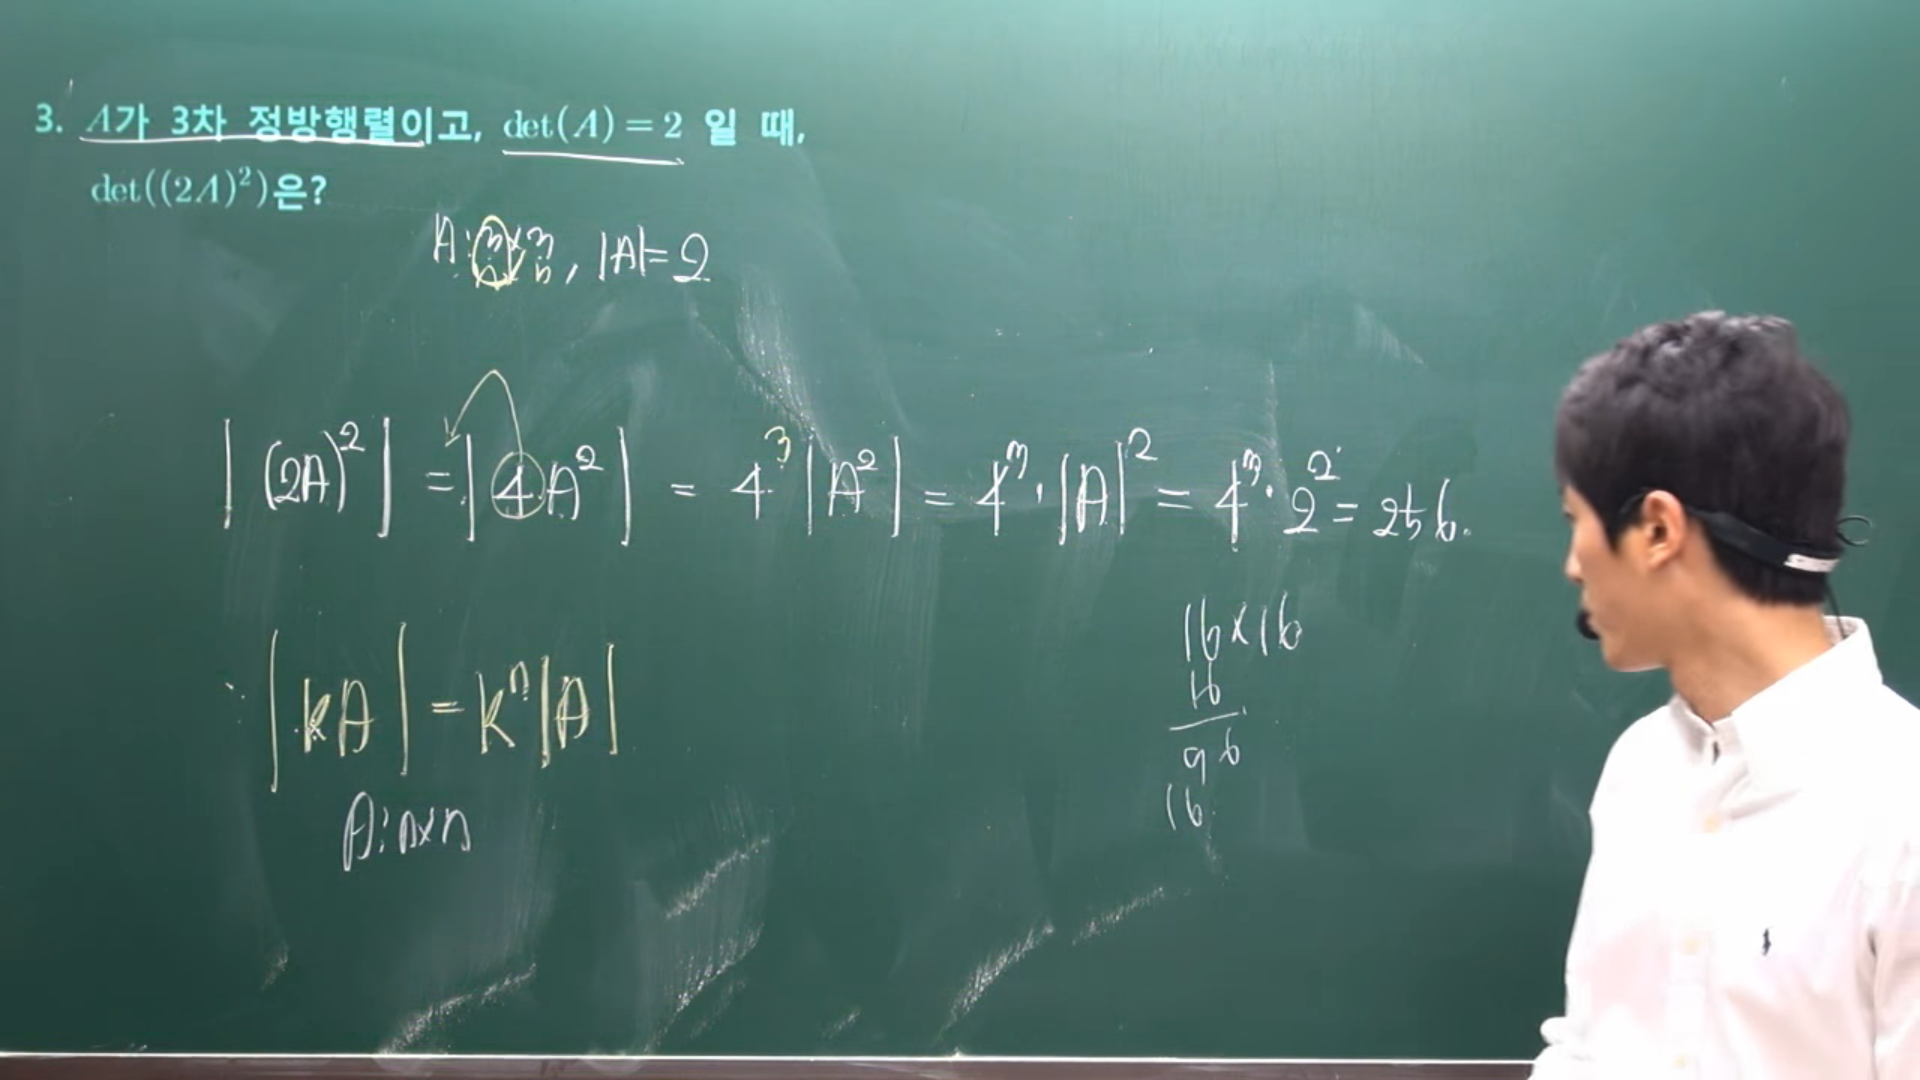 3. A가 3차 정방행렬이고, det(A) = 2 일 때,
det((2A)²)은?
A : 3×3, |A| = 2
n×n
|(2A)²| = |4A²| = 4³|A²| = 4³·|A|² = 4³·2² = 256.
∵ |kA| = kⁿ|A|
A : n×n
16×16
16
96
16